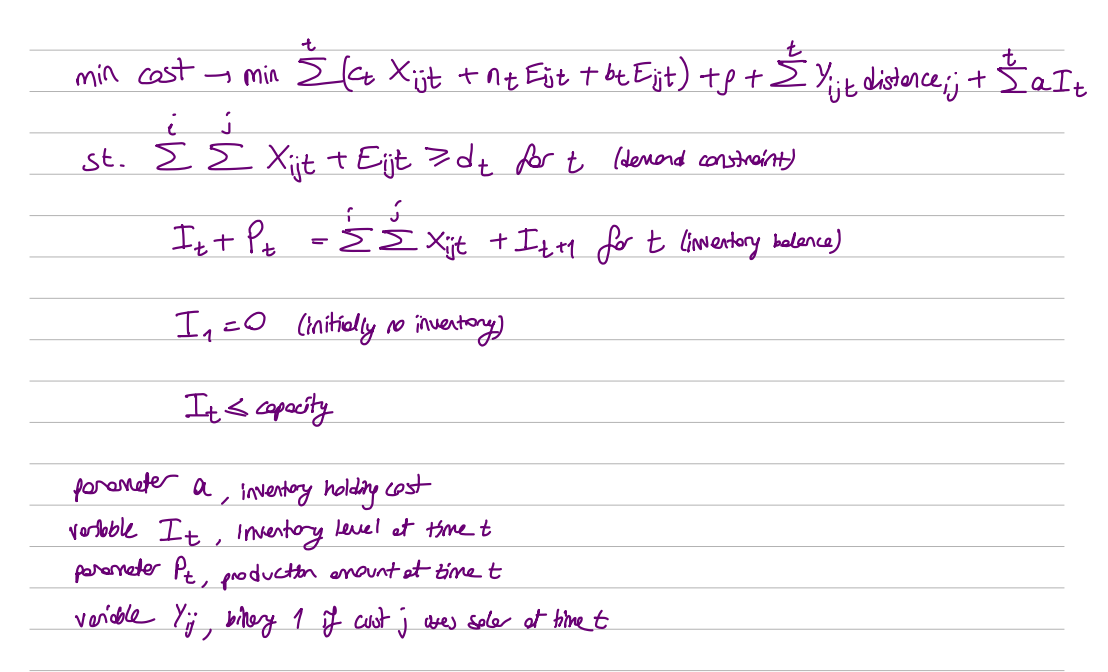 min cost → min Σ^t (c_t X_ijt + n_t E_ijt + b_t E_jt) + ρ + Σ^t Y_ijt distance_ij + Σ^t a I_t
st. Σ^i Σ^j X_ijt + E_ijt ≥ d_t for t (demand constraint)
I_t + P_t = Σ^i Σ^j X_ijt + I_t+1 for t (inventory balance)
I_1 = 0 (initially no inventory)
I_t ≤ capacity
parameter a, inventory holding cost
variable I_t, inventory level at time t
parameter P_t, production amount at time t
variable Y_ij, binary 1 if cust j uses solar at time t